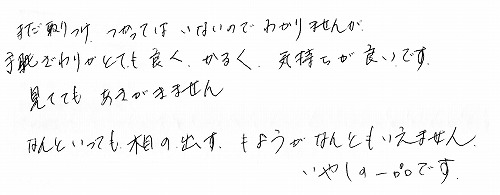 まだ取りつけ、つかってはいないのでわかりませんが、
手ざわりがとても良く、かるく、気持ちが良いです。
見てても あきがきません
なんといっても 木目の出す、もようがなんともいえません、
いやしの一品です。